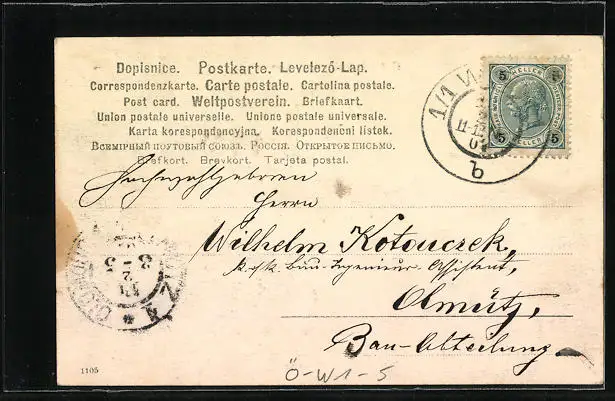 Dopisnice. Postkarte. Levelező-Lap.
Correspondenzkarte. Carte postale. Cartolina postale.
Post card. Weltpostverein. Briefkaart.
Union postale universelle. Unione postale universale.
Karta korespondencyjna. Korespondenční listek.
Всемірный почтовый союзъ. Россія. Открытое письмо.
Brefkort. Brevkort. Tarjeta postal.
1/1 Wi
b
HELLER
5 5
5 5
HELLER
Hochwohlgeboren
Herrn
Wilhelm Kotouczek,
k. k. Bau-Ingenieur-Assistent,
Olmütz,
Bau-Abteilung
1105
Ö-W1-5